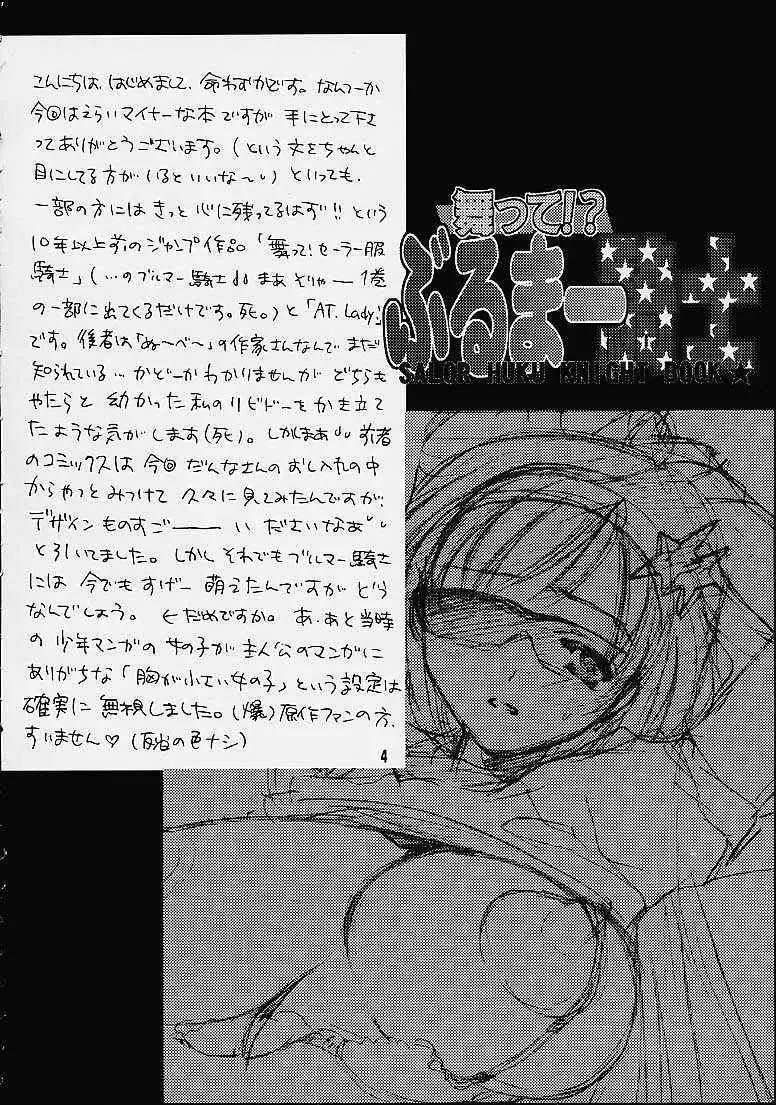 こんにちは、はじめまして、命わずかです。なんつーか
今回はえらいマイナーな本ですが 手にとって下さ
ってありがとうございます。(という文をちゃんと
目にしてる方が いるといいな〜い) といっても、
一部の方には きっと 心に残ってるはず!! という
10年以上前のジャンプ作品「舞って!セーラー服
騎士」(…のブルマー騎士 まあ そりゃー1巻
の一部に出てくるだけです。死。) と「AT. Lady」
です。後者は「ぬ〜べ〜」の作家さんなんで まだ
知られている… かどーか わかりませんが どちらも
やたらと 幼かった 私の リビドーを かき立て
たような気がします(死)。しかしまあ 前者
のコミックスは 今回 だんなさんの おし入れの中
からやっとみつけて 久々に見てみたんですが、
デザイン ものすごーーー い ださいなあ
とろいてました。しかし それでも ブルマー騎士
には 今でも すげー 萌えたんですが どう
なんでしょう。 ← だめですか。あ、あと 当時
の 少年マンガの 女の子が 主人公のマンガに
ありがちな 「胸が小さい女の子」という設定は
確実に 無視しました。(爆) 原作ファンの方、
すいません♡ (反省の色ナシ)
4
舞って!?
ぶるまー騎士
SALOR HUKU KNIGHT BOOK★